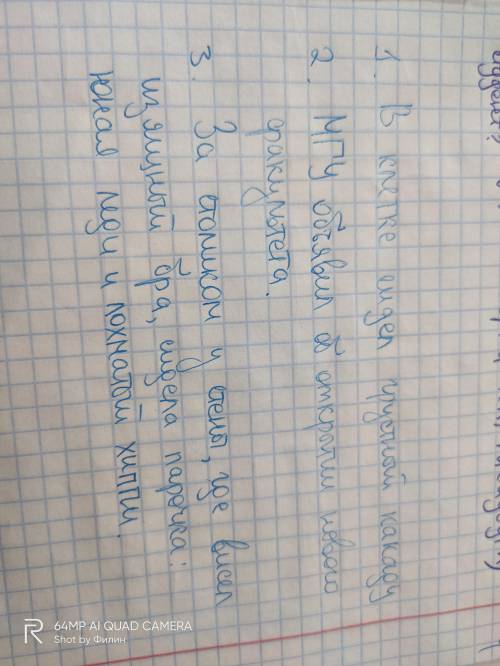 1. В клетке сидел грустной какаду
2. МГУ объявил об открытии нового
факультета.
3. За столиком у стены, где висел
изящный бра, сидела парочка:
юная леди и лохматой хиппи.
64MP AI QUAD CAMERA
Shot by Филин